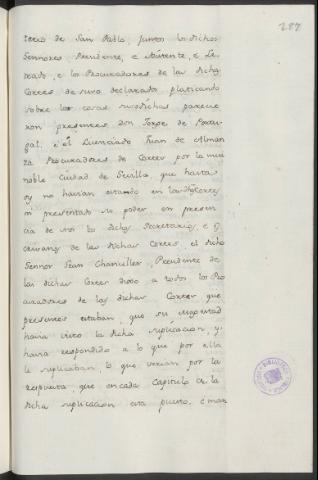 287
terio de San Pablo, juntos los dichos
Señores Presidente, e Asistente, e Le-
trado, e los Procuradores de las dichas
Cortes de suso declarado platicando
sobre las cosas susodichas parecie-
ron presentes Don Jorge de Portu-
gal, e el Licenciado Juan de Alman-
za Procuradores de Cortes por la mui
noble Ciudad de Sevilla, que hasta
oy no havian estado en las dhas Cortes,
ni presentado su poder en presen-
cia de nos los dichos Secretarios, e E
crivanos de las dichas Cortes, el dicho
Señor Gran Chanciller, Presidente de
las dichas Cortes dixo a todos los Pro
curadores de las dichas Cortes que
presentes estaban, que su Magestad
havia visto la dicha suplicacion, y
havia respondido a lo que por ella
le suplicaban, lo que verian por la
respuesta, que en cada Capitulo de la
dicha suplicacion esta puesto, e man